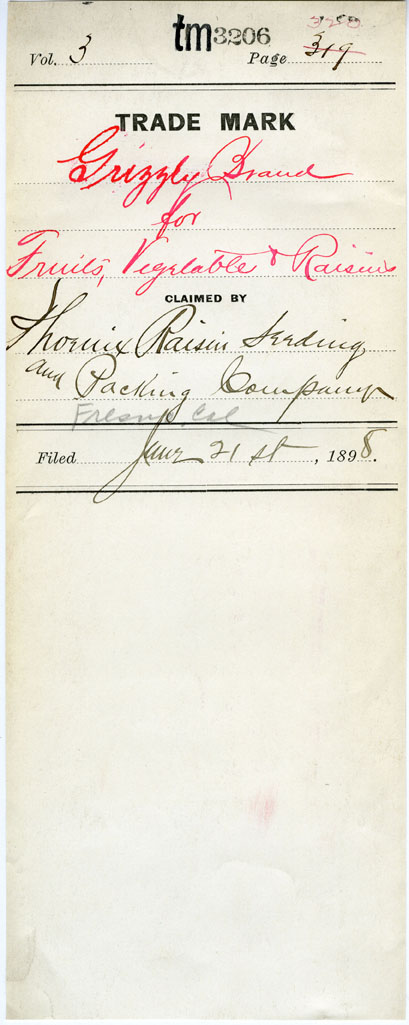 tm3206
Vol. 3 Page 319
TRADE MARK
Grizzly Brand
for
Fruits, Vegetable & Raisins
CLAIMED BY
Phoenix Raisin Seeding
and Packing Company
Fresno, Cal
Filed June 21 st, 1898.